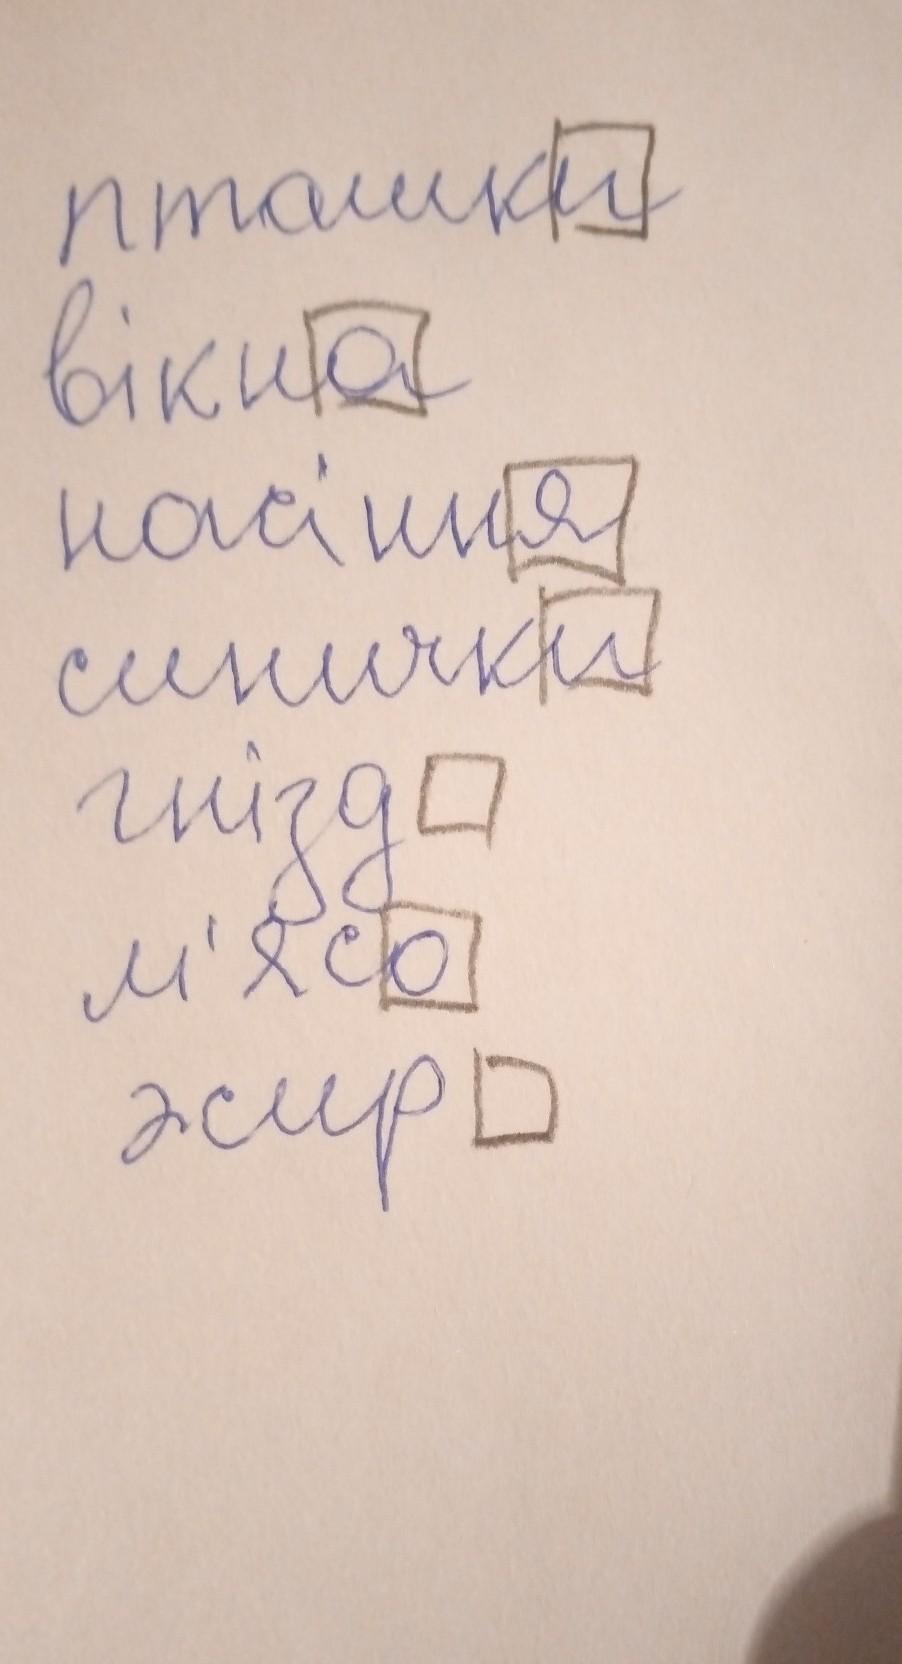 пташки
вікна
насіння
синички
гнізд
м'ясо
жир